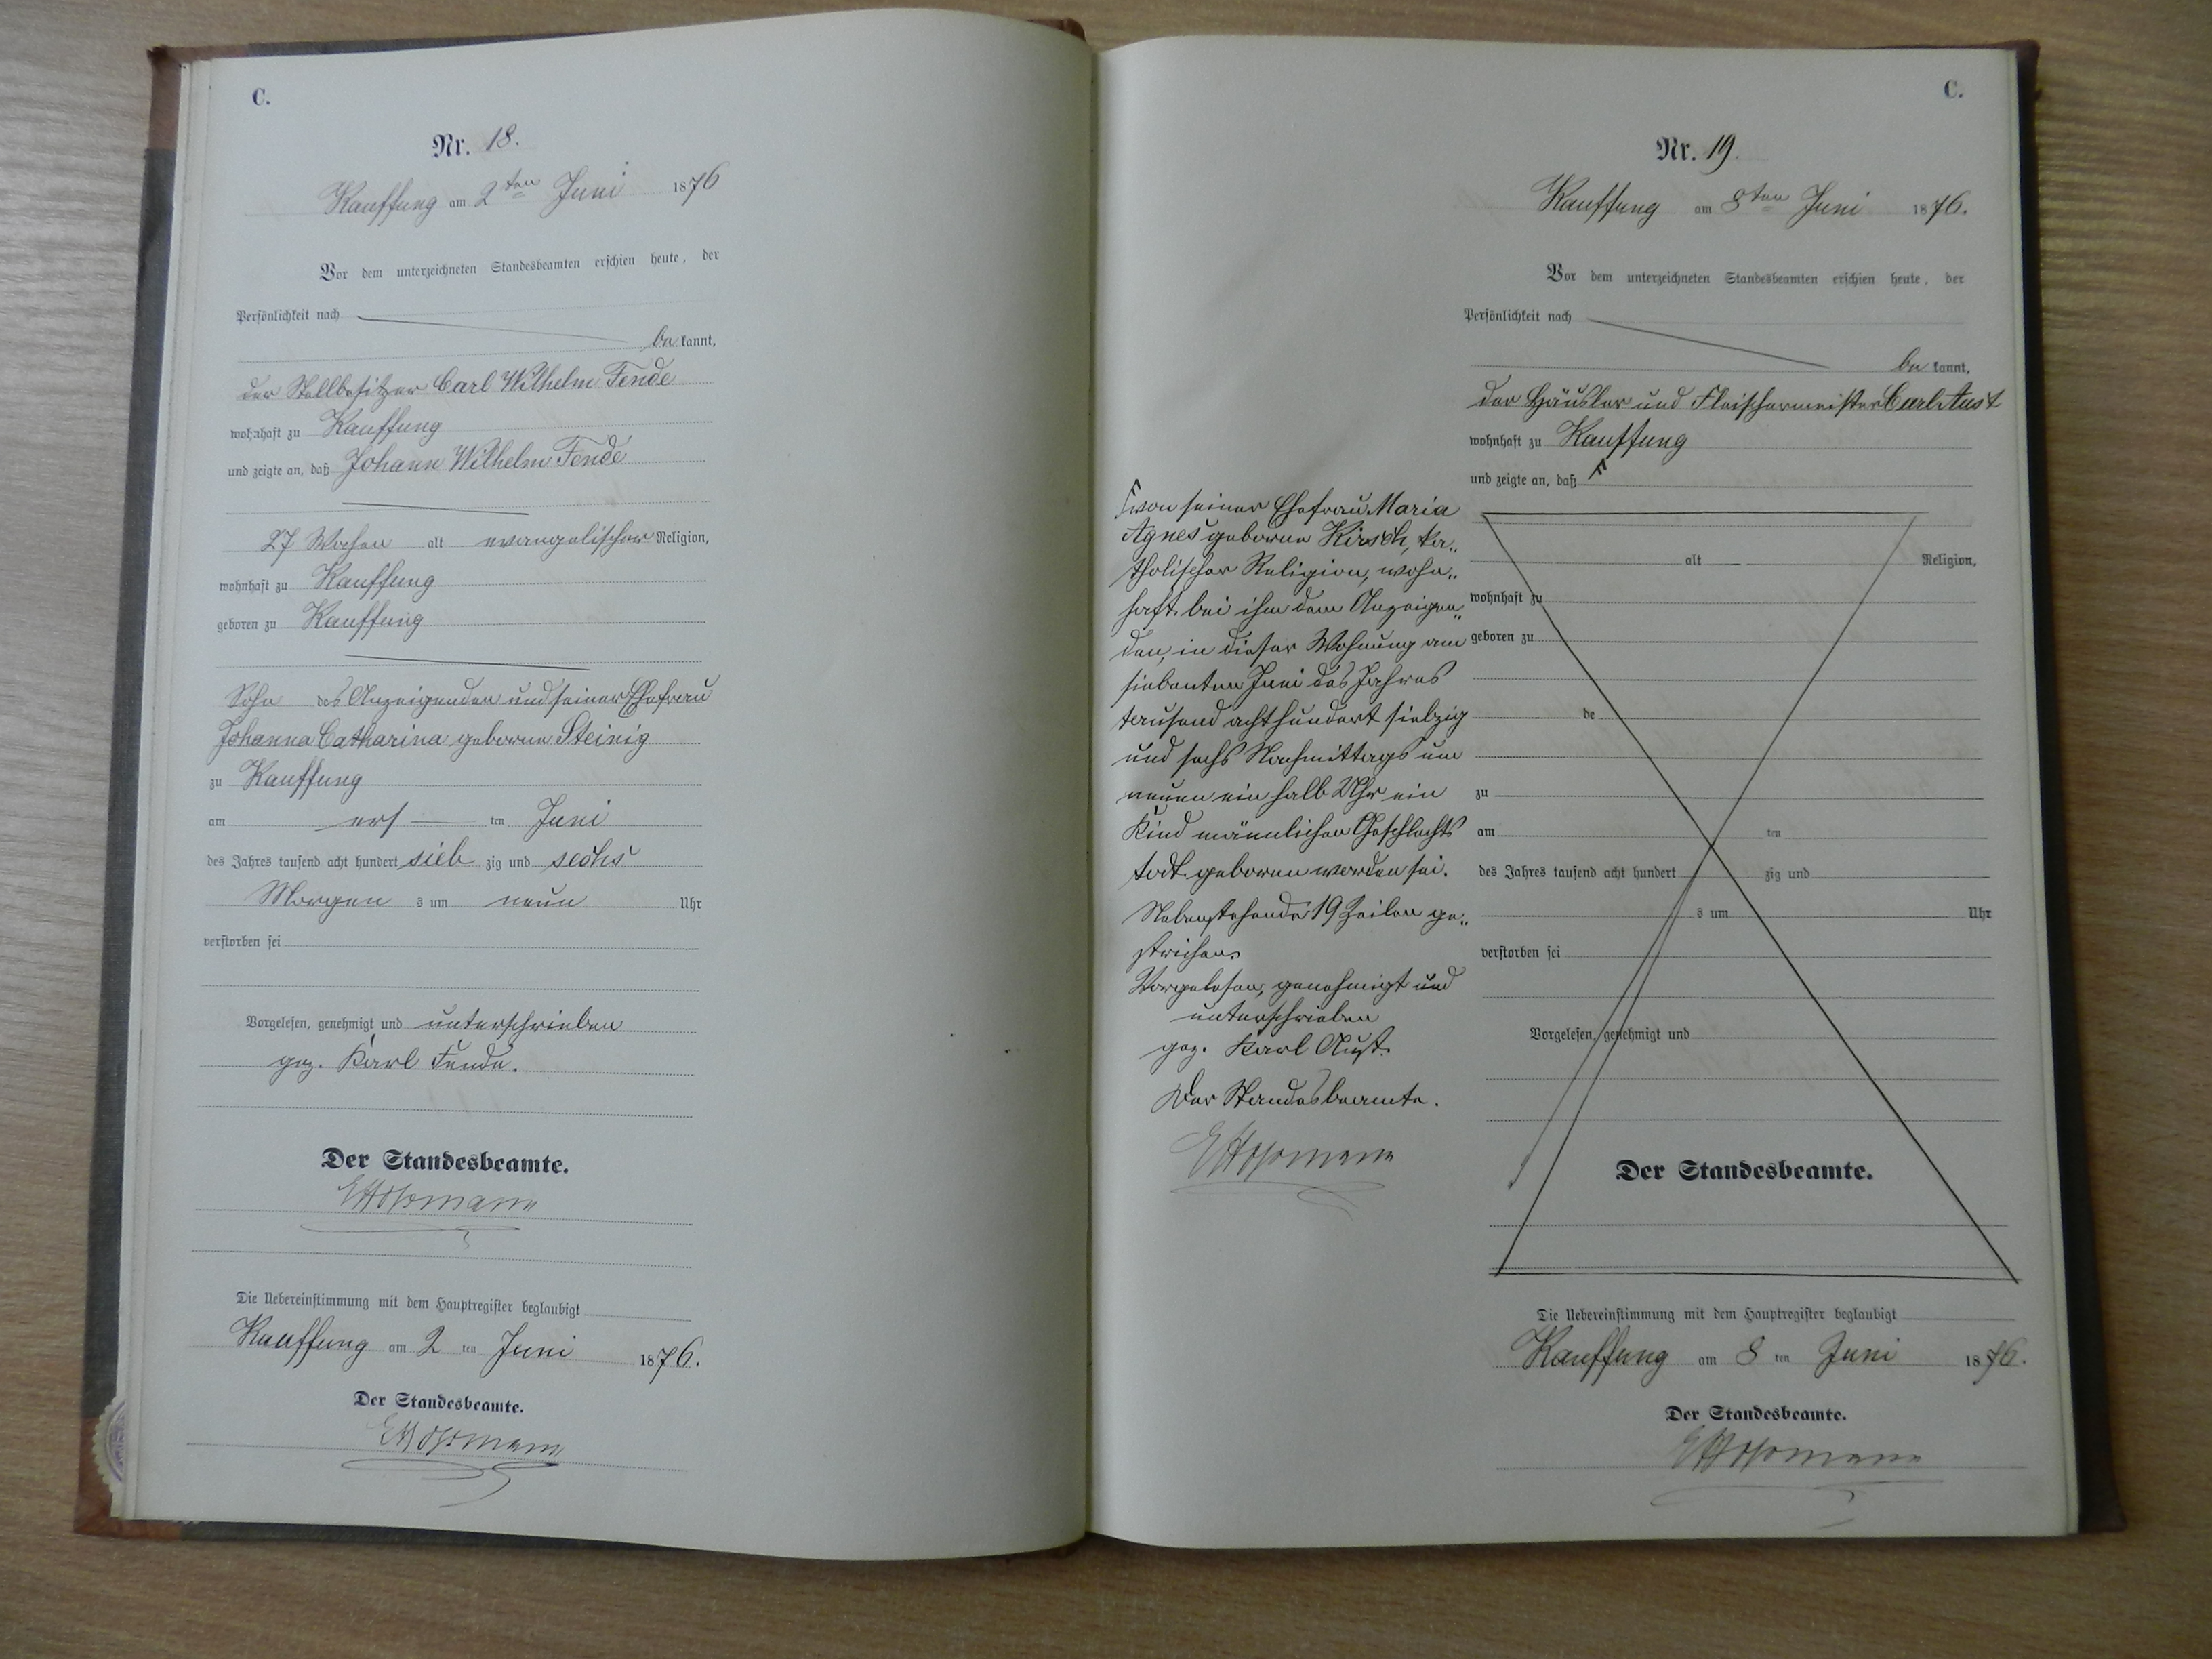 C.
Nr. 18.
Kauffung am 2ten Juni 1876
Vor dem unterzeichneten Standesbeamten erschien heute, der
Persönlichkeit nach
be kannt,
der Stellbesitzer Carl Wilhelm Fende
wohnhaft zu Kauffung
und zeigte an, daß Johann Wilhelm Fende
27 Wochen alt evangelischer Religion,
wohnhaft zu Kauffung
geboren zu Kauffung
Sohn des Anzeigenden und seiner Ehefrau
Johanna Catharina geborne Steinig
zu Kauffung
am ers ten Juni
des Jahres tausend acht hundert sieb zig und sechs
Morgen s um neun Uhr
verstorben sei
Vorgelesen, genehmigt und unterschrieben
gez. Karl Fende.
Der Standesbeamte.
Die Uebereinstimmung mit dem Hauptregister beglaubigt
Kauffung am 2 ten Juni 1876.
Der Standesbeamte.
C.
Nr. 19.
Kauffung am 8ten Juni 1876.
Vor dem unterzeichneten Standesbeamten erschien heute, der
Persönlichkeit nach
be kannt,
der Häusler und Fleischermeister Carl Aust
wohnhaft zu Kauffung
und zeigte an, daß
von seiner Ehefrau Maria
Agnes geborne Kirsch, ka„
tholischer Religion, wohn„
haft bei ihm dem Anzeigen„
den, in dieser Wohnung am
siebenten Juni des Jahres
tausend achthundert siebzig
und sechs Nachmittags um
neunen ein halb Uhr ein
Kind männlichen Geschlechts
todt geboren worden sei.
Nebenstehende 19 Zeilen ge„
strichen.
Vorgelesen, genehmigt und
unterschrieben
gez. Karl Aust.
Der Standesbeamte.
alt Religion,
wohnhaft zu
geboren zu
de
zu
am ten
des Jahres tausend acht hundert zig und
s um Uhr
verstorben sei
Vorgelesen, genehmigt und
Der Standesbeamte.
Die Uebereinstimmung mit dem Hauptregister beglaubigt
Kauffung am 8 ten Juni 1876.
Der Standesbeamte.